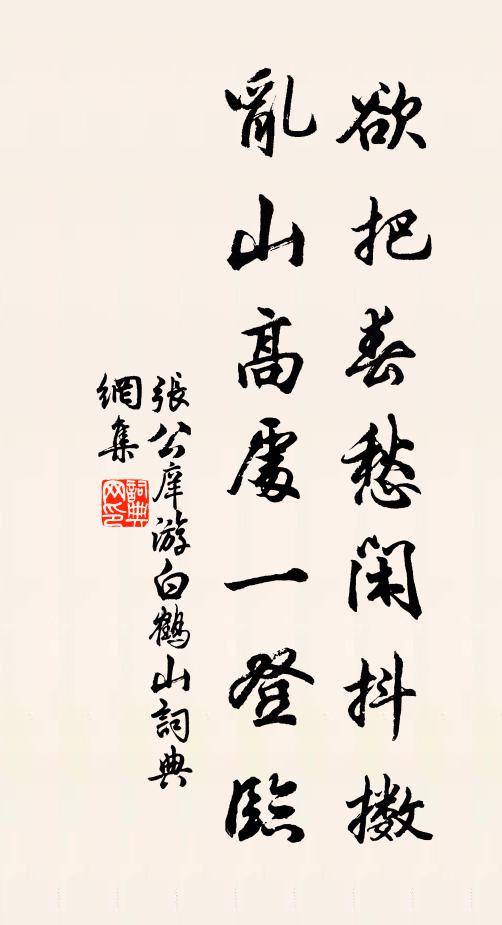 欲把春愁閑抖擻
亂山高處一登臨
張公庠游白鶴山詞典
網集
詞典
网印